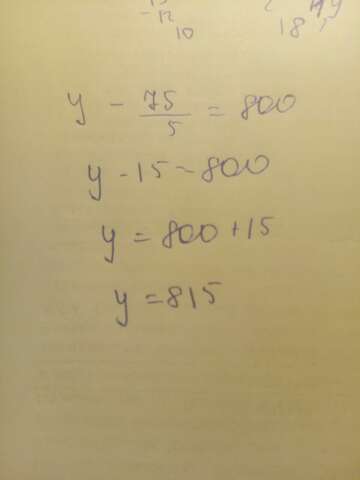 - 12
10
18
y - 75/5 = 800
y - 15 - 800
y = 800 + 15
y = 815